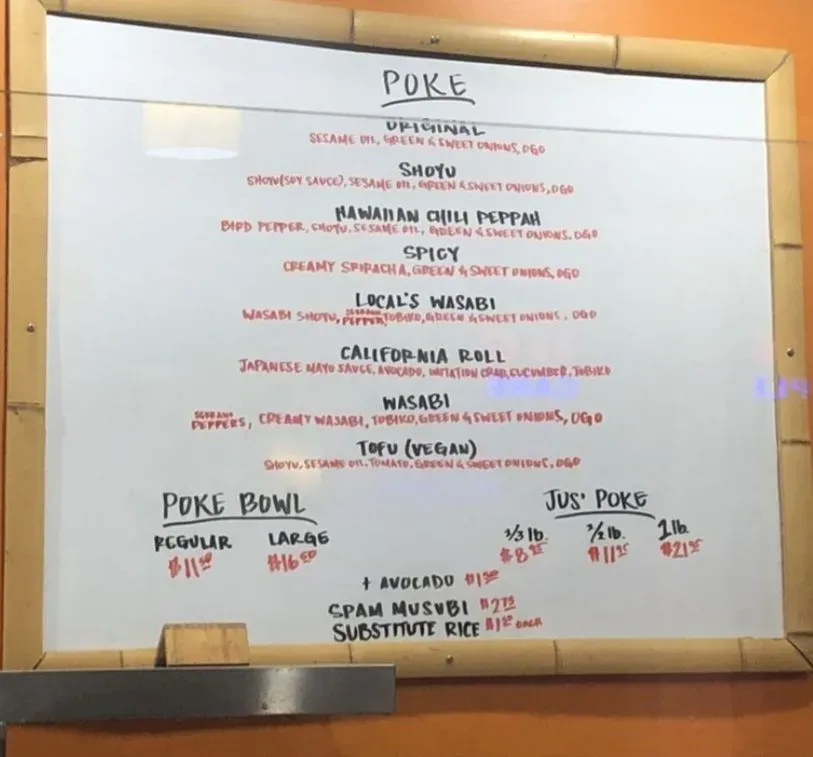 POKE
ORIGINAL
SESAME OIL, GREEN & SWEET ONIONS, OGO
SHOYU
SHOYU(SOY SAUCE), SESAME OIL, GREEN & SWEET ONIONS, OGO
HAWAIIAN CHILI PEPPAH
BIRD PEPPER, SHOYU, SESAME OIL, GREEN & SWEET ONIONS, OGO
SPICY
CREAMY SRIRACHA, GREEN & SWEET ONIONS, OGO
LOCAL'S WASABI
WASABI SHOYU, SERRANO PEPPER, TOBIKO, GREEN & SWEET ONIONS, OGO
CALIFORNIA ROLL
JAPANESE MAYO SAUCE, AVOCADO, IMITATION CRAB, CUCUMBER, TOBIKO
WASABI
SERRANO PEPPERS, CREAMY WASABI, TOBIKO, GREEN & SWEET ONIONS, OGO
TOFU (VEGAN)
SHOYU, SESAME OIL, TOMATO, GREEN & SWEET ONIONS, OGO
POKE BOWL JUS' POKE
REGULAR LARGE 1/3 lb. 1/2 lb. 1 lb.
$11.50 $16.50
+ AVOCADO
SPAM MUSUBI $2.75
SUBSTITUTE RICE EACH